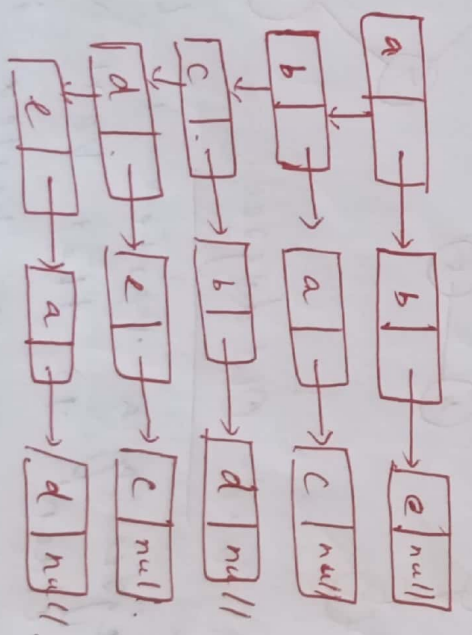 a b e null
b a c null
c . b d null
d . e . c null.
e a d null